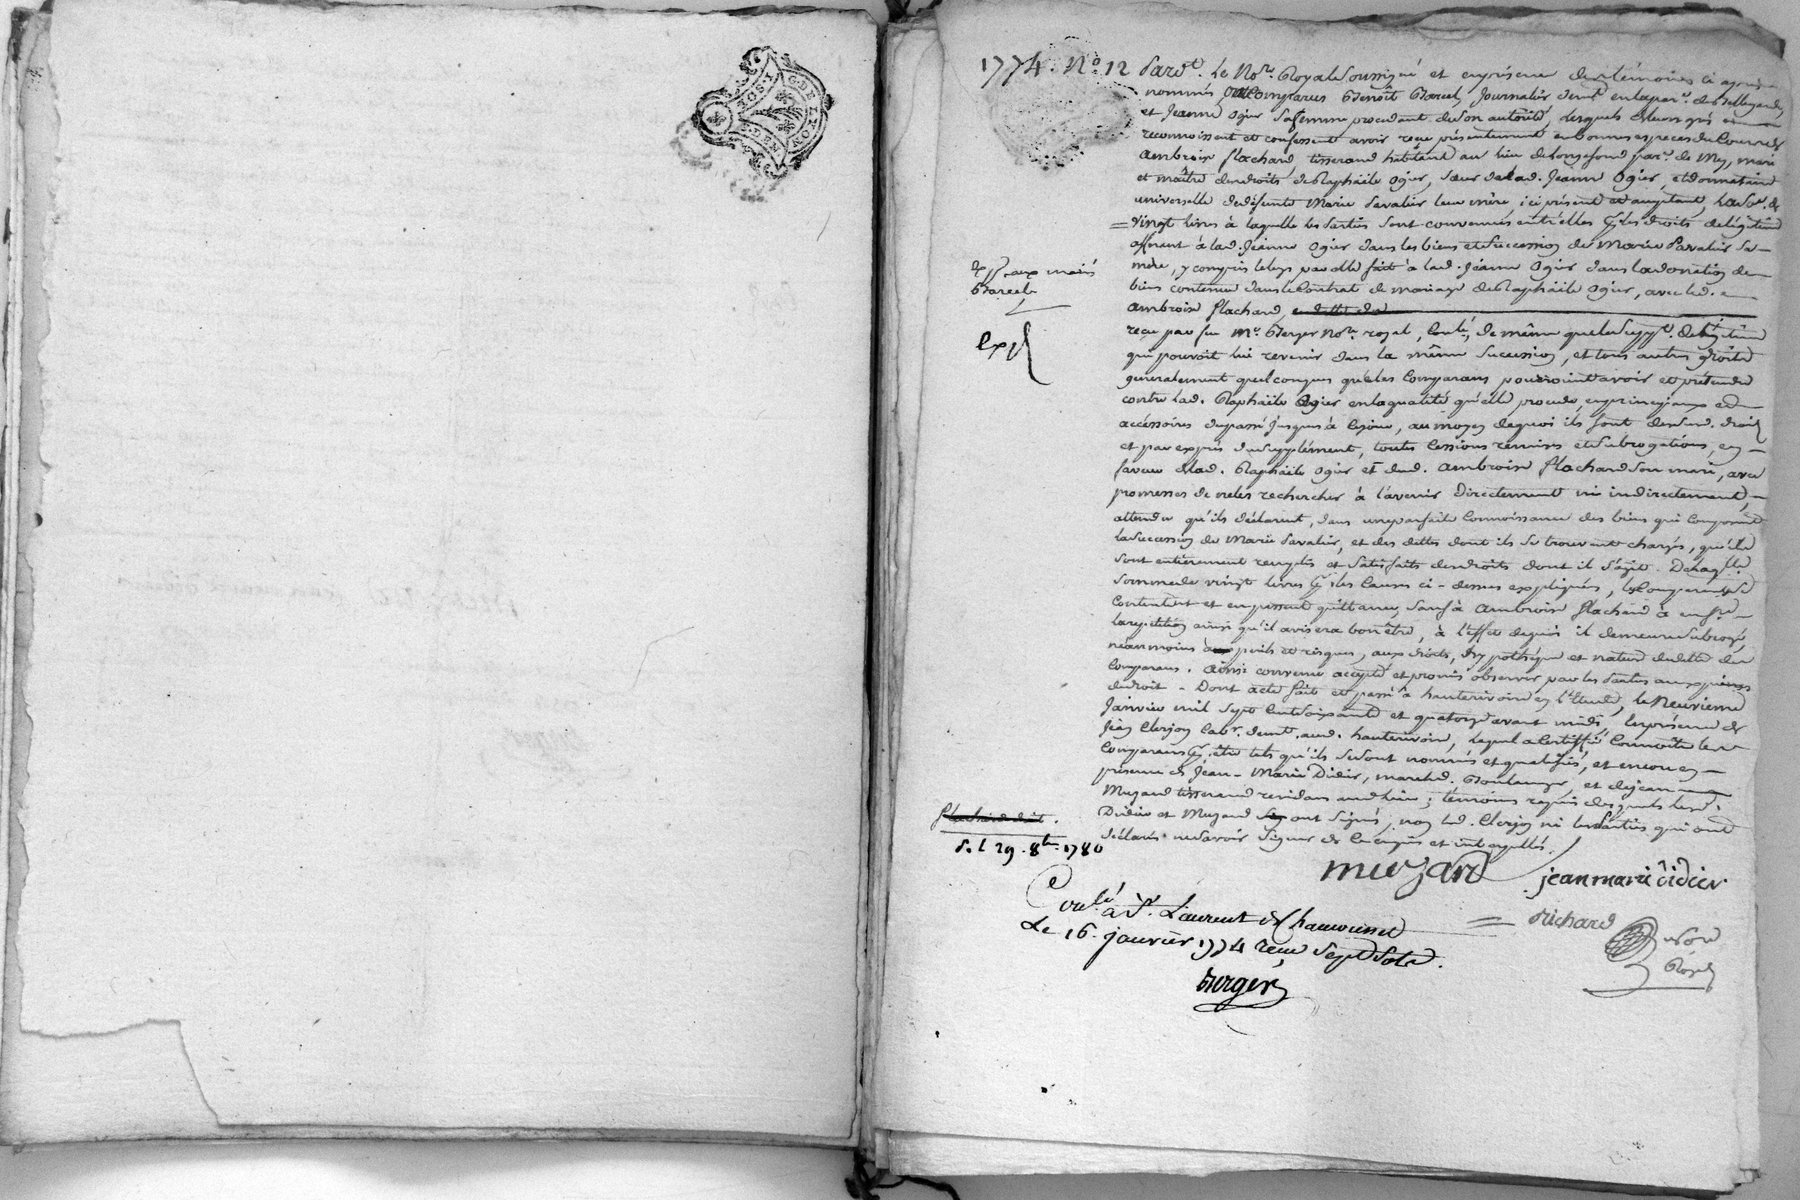 GEN. DE LYON
1774. No. 12 Pardt. Le Nore. Royal soussigné et en présence des témoins ci après
nommés, ont Comparus Benoît Barcel, Journalier demt. en la parr. de
et Jeanne Ogier sa femme procedant de son autorité, lesquels de leur gré
reconnoissent et confessent avoir reçu présentement en bonnes especes du Cours de
Ambroise flachard, tisserand habitant au lieu de parr. de Mey, mari
et maître des droits de Raphaële Ogier, sœur de lad. Jeanne Ogier, et donnataire
universelle de défunte Marie Savalier leur mère, ici présent et acceptant, la so.e de
vingt livres à laquelle les Parties sont convenues entr'elles pr. les droits de légitime
afférent à lad. Jeanne Ogier dans les biens et succession de Marie Savalier sa
mère, y compris le legs par elle fait à lad. Jeanne Ogier dans la donation de
biens contenue dans le Contrat de mariage de Raphaële Ogier, avec led.
Ambroise flachard,
reçu par feu Me. Berger Nore. royal, Conlé, de même que le suppt. de légitime
qui pouvoit lui revenir dans la même succession, et tous autres droits
generalement quelconques que les Comparans pouvoient avoir et prétendre
contre lad. Raphaële Ogier en la qualité qu'elle procede, en principaux et
accéssoires du passé jusques à ce jour, au moyen de quoi ils font desdud. droits
et par exprès du supplément, toutes Cessions remises et subrogations, en
faveur de lad. Raphaële Ogier et dud. Ambroise flachard son mari, avec
promesses de ne les rechercher à l'avenir directement ni indirectement,
attendu qu'ils déclarent, dans une parfaite Connoissance des biens qui composent
la succession de Marie Savalier, et des dettes dont ils se trouvent chargés, qu'ils
sont entièrement remplis et satisfaits des droits dont il s'agit. De laqlle.
somme de vingt livres pr. les causes ci-dessus expliquées, les Comparans se
contentent et en passent quittance, sauf à Ambroise flachard à en fre.
la repetition ainsi qu'il avisera bon être, à l'effet de quoi il demeure subrogé,
néanmoins à périls et risques, aux droits, hypothéque et nature de dette des
Comparans. Ainsi convenu accepté et promis observer par les Parties aux peines
de droit. Dont acte fait et passé à hauterivoire en l'Etude, le Neuvieme
Janvier mil sept Cent soixante et quatorze avant midi, En présence de
Jean Clerjon Labr. demt. aud. hauterivoire, lequel a Certiffié Connoître les
Comparans pr. être tels qu'ils se sont nommés et qualifiés, et encore en
présence de Jean-Marie Didier, marchd. Boulanger, et de jean
Muzard tisserand residans aud. lieu; temoins requis desquels lesd.
Didier et Muzard ont signés, non led. Clerjon ni les Parties qui ont
déclaré ne savoir signer de ce enquis et interpellés.
Exp. aux mariés
Barcel
Exp.
flachard doit.
S. l. 29. 8bre. 1780
muzard jean marie didier
Conlé. à St. Laurent de Chamousset
Le 16. janvier 1774 reçu Sept Sols.
Berger
Richard
Nore
Royal